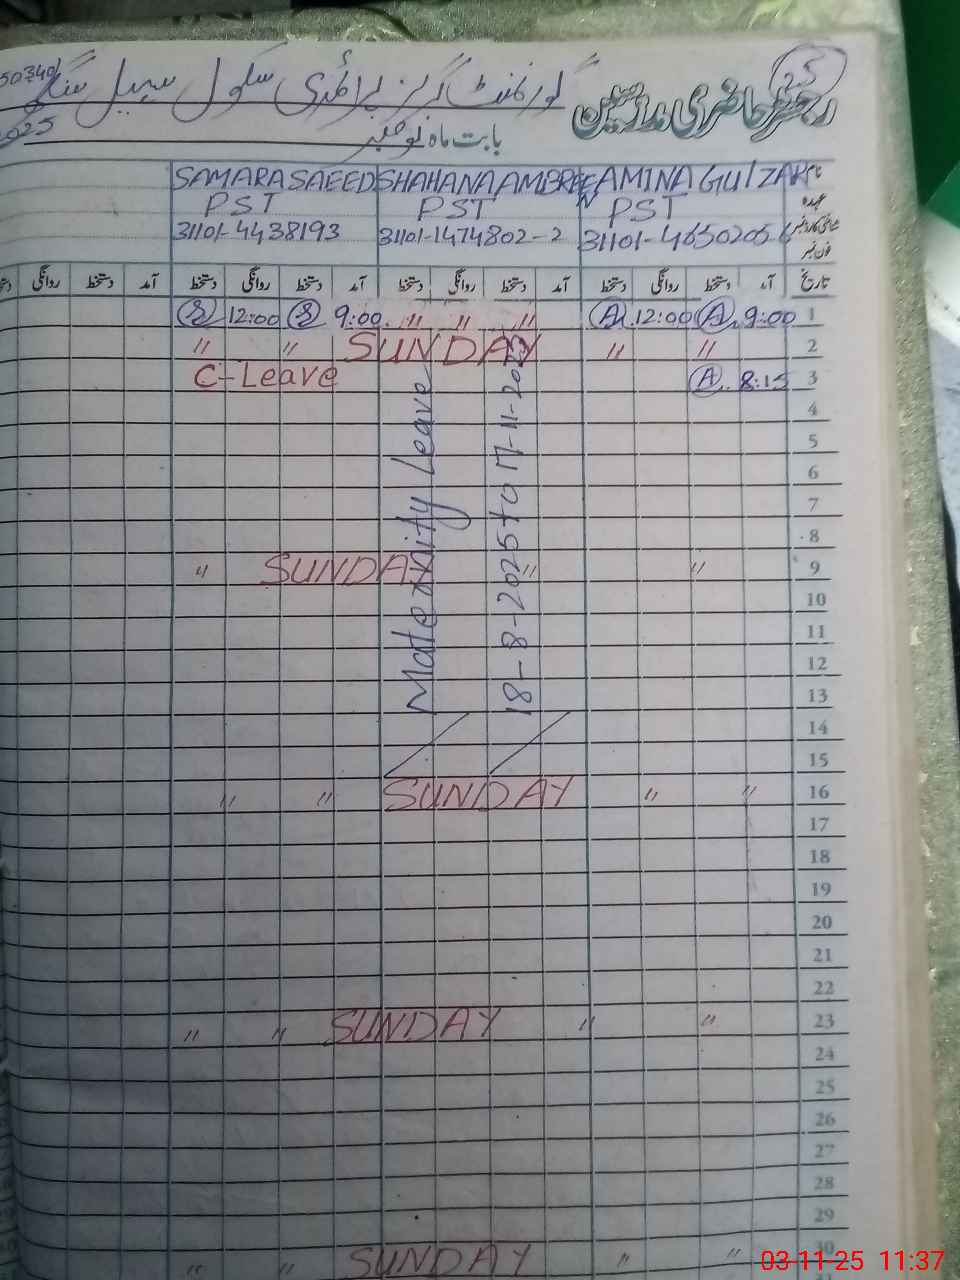 25
رجسٹر حاضری مدرسین
گورنمنٹ گرلز پرائمری سکول سہیل
2025
بابت ماہ نومبر
SAMARA SAEED SHAHANA AMBREEN AMINA GULZAR نام
PST PST PST عہدہ
31101-4438193 31101-1474802-2 31101-4650205-6
فون نمبر
روانگی دستخط آمد دستخط روانگی دستخط آمد دستخط روانگی دستخط آمد دستخط روانگی دستخط آمد تاریخ
S 12:00 S 9:00 〃 〃 〃 A 12:00 A 9:00 1
〃 〃 SUNDAY 〃 〃 2
C-Leave A 8:15 3
4
5
6
7
8
〃 SUNDAY 〃 〃 9
10
11
12
13
Maternity Leave
18-8-2025 to 17-11-2025
14
15
〃 〃 SUNDAY 〃 〃 16
17
18
19
20
21
22
〃 〃 SUNDAY 〃 〃 23
24
25
26
27
28
29
〃 〃 SUNDAY 〃 〃 30
03-11-25 11:37